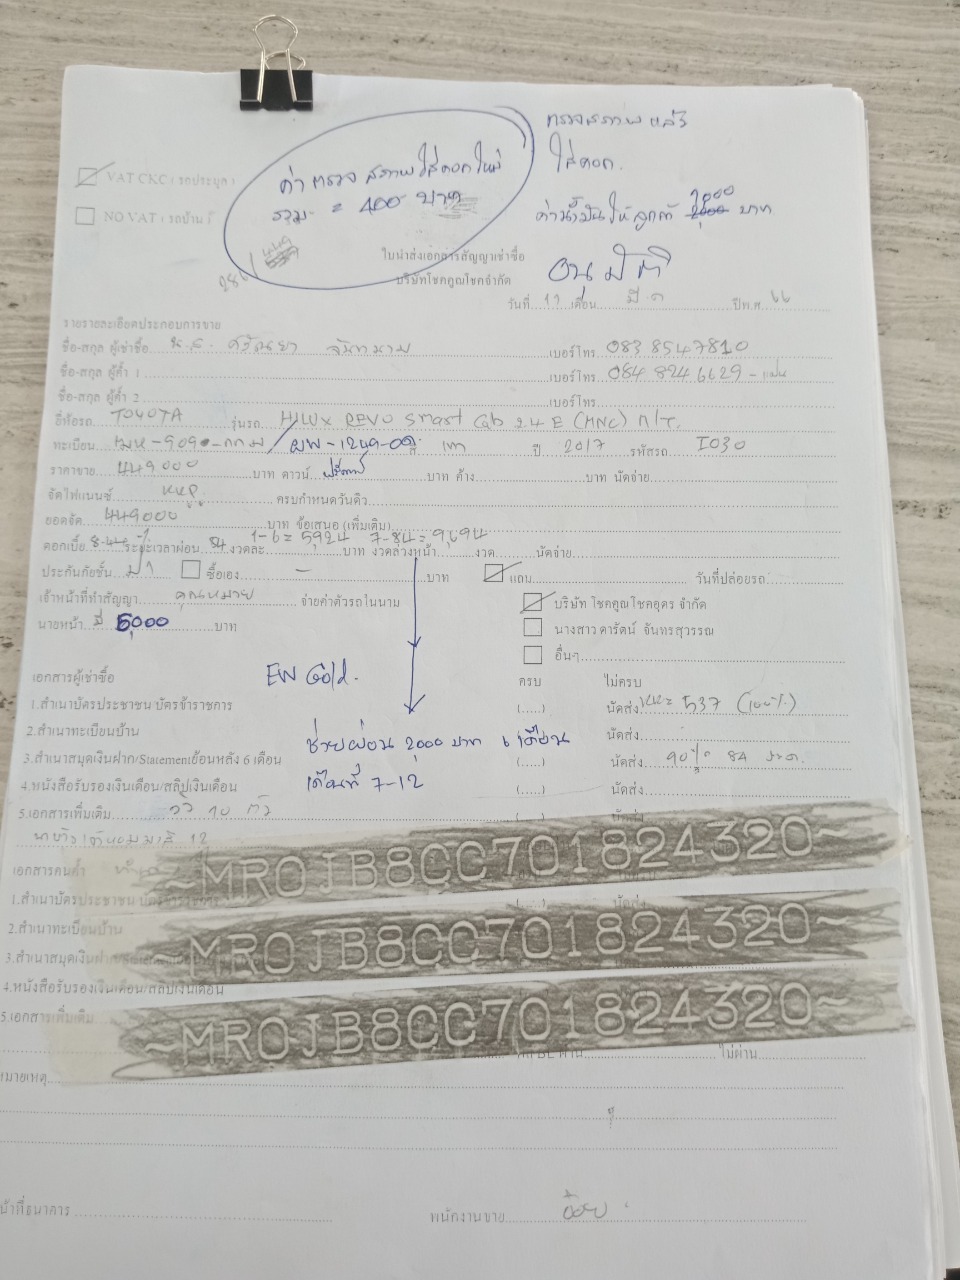 ตรวจสภาพ แล้ว
ใส่ดอก.
ค่าตรวจ สภาพ ใส่ดอกใหม่
รวม = 400 บาท
VAT CKC ( รถประมูล )
NO VAT ( รถบ้าน )
ค่าน้ำมันให้ลูกค้า 2000 บาท
ใบนำส่งเอกสารสัญญาเช่าซื้อ
บริษัทโชคคูณโชคจำกัด
อนุมัติ
วันที่ 17 เดือน มี.ค ปีพ.ศ. 66
รายละเอียดประกอบการขาย
ชื่อ-สกุล ผู้เช่าซื้อ น.ส. เบอร์โทร 083 8547810
ชื่อ-สกุล ผู้ค้ำ 1 เบอร์โทร 084 824 6629 - แฟน
ชื่อ-สกุล ผู้ค้ำ 2 เบอร์โทร
ยี่ห้อรถ TOYOTA รุ่นรถ HILUX REVO Smart Cab 2.4 E (MNC) M/T.
ทะเบียน / ผพ-1249-อด. สี เทา ปี 2017 รหัสรถ I030
ราคาขาย 449000 บาท ดาวน์ ฟรีดาวน์ บาท ค้าง บาท นัดจ่าย
จัดไฟแนนซ์ KKP ครบกำหนดวันดิว
ยอดจัด 449000 บาท ข้อเสนอ (เพิ่มเติม)
1-6 = 5,924 7-84 = 9,694
ดอกเบี้ย ระยะเวลาผ่อน 84 งวดละ บาท งวดล่วงหน้า งวด นัดจ่าย
ประกันภัยชั้น ป1 ซื้อเอง - บาท แถม วันที่ปล่อยรถ
เจ้าหน้าที่ทำสัญญา คุณหมาย จ่ายค่าตัวรถในนาม บริษัท โชคคูณโชคอุดร จำกัด
นายหน้า มี 5,000 บาท นางสาว ดารัตน์ จันทรสุวรรณ
อื่นๆ
เอกสารผู้เช่าซื้อ EW Gold. ครบ ไม่ครบ
1.สำเนาบัตรประชาชน บัตรข้าราชการ (.....) นัดส่ง = 537 (100%)
2.สำเนาทะเบียนบ้าน นัดส่ง
ช่วยผ่อน 2,000 บาท 6 เดือน
3.สำเนาสมุดเงินฝาก/Statementย้อนหลัง 6 เดือน (.....) นัดส่ง 90% 84 งวด.
เดือนที่ 7-12
4.หนังสือรับรองเงินเดือน/สลิปเงินเดือน (.....) นัดส่ง
5.เอกสารเพิ่มเติม วัว 10 ตัว
เอกสารคนค้ำ
~MR0JB8CC701824320~
1.สำเนาบัตรประชาชน บัตรข้าราชการ
2.สำเนาทะเบียนบ้าน
~MR0JB8CC701824320~
3.สำเนาสมุดเงินฝาก
4.หนังสือรับรองเงินเดือน/สลิปเงินเดือน
5.เอกสารเพิ่มเติม
~MR0JB8CC701824320~
ไม่ผ่าน
หมายเหตุ
หน้าที่ธนาคาร
พนักงานขาย อ้อย